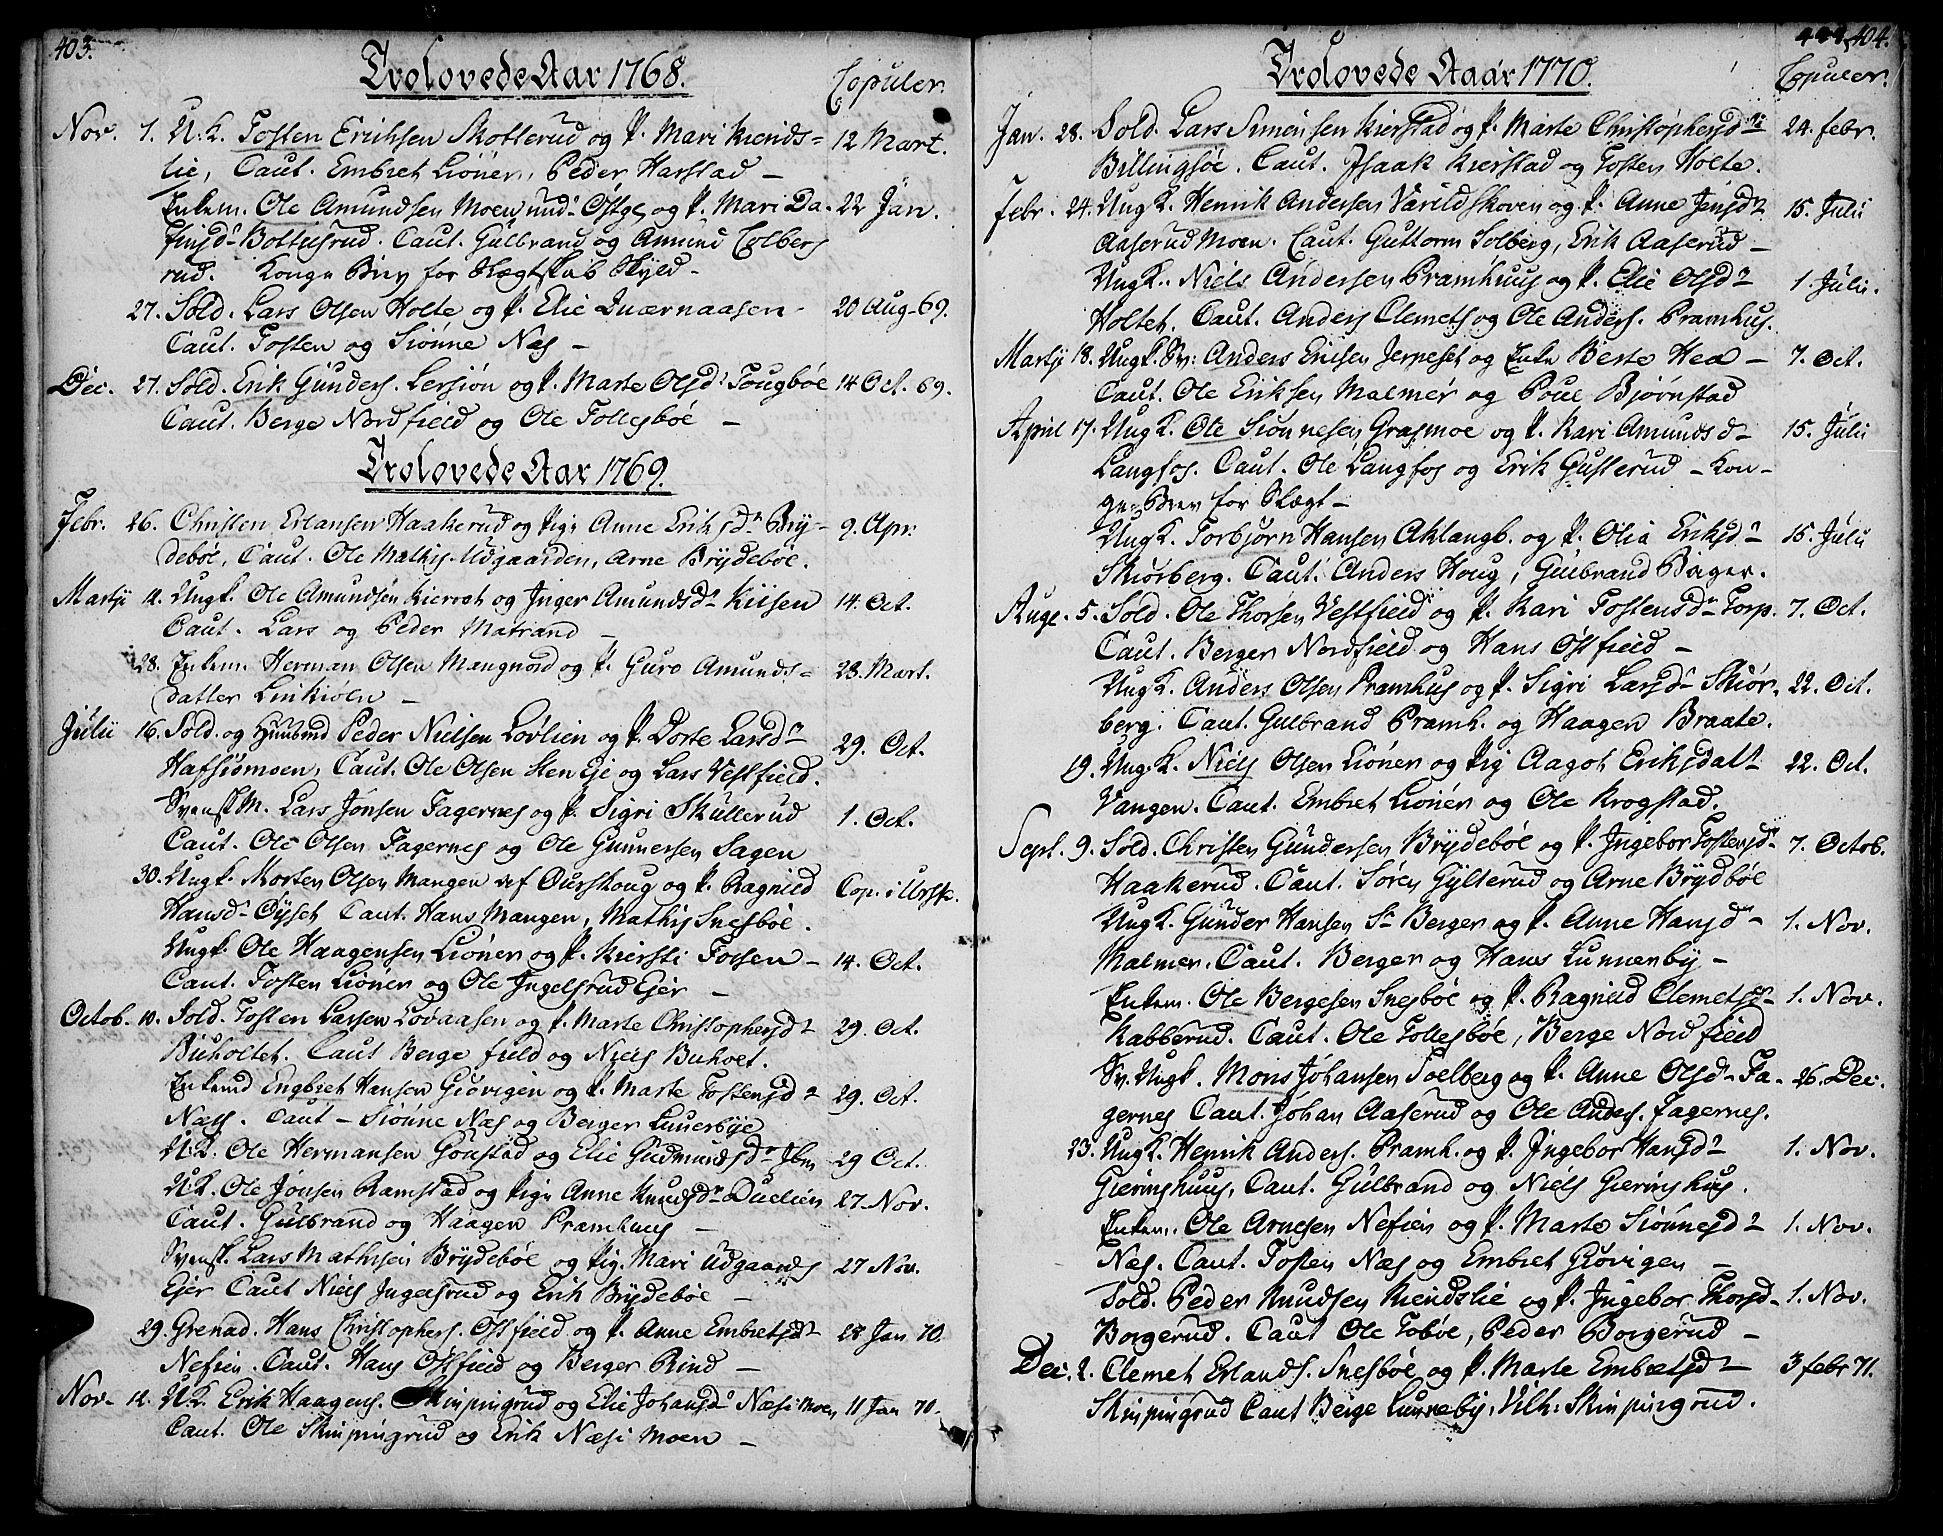 403.
Trolovede Aar 1768.
Copuler.
Nov. 1. U.K. Tosten Erichsen Skotterud og P. Mari Kiends= 12 Mart.
lie, Caut. Embret Liöner, Peder Harstad —
Enkem. Ole Amundsen Moen og P. Mari Da- 22 Jan.
finsd. Caut. Gulbrand og Amund Colbers
rud. Konge Brev for Slægtskab Skyld —
27. Sold. Lars Olsen Holte og P. Elie Quærnaasen 20 Aug. 69.
Caut. Tosten og Siönne Næs —
Dec. 27. Sold. Erik Gunders. Lersiön og P. Marte Olsd. Tougböe 14 Oct. 69.
Caut. Berge Nordfield og Ole Tollesböe —
Trolovede Aar 1769.
Febr. 26. Christen Erlansen Haakerud og Pige Anne Eriksdr Bry- 9. Apr.
deböe, Caut. Ole Mathis. Udgaarden, Arne Brydeböe.
Martji 12. Ungk. Ole Amundsen Kierret og Inger Amundsdr Kiilsen 14. Oct.
Caut. Lars og Peder Matrand —
28. Enkem. Herman Olsen Mangnord og P. Guro Amunds= 28. Mart.
datter Linkiölen —
Julii 16. Sold. og Peder Nielsen Lövlien og P. Dorte Larsdr 29. Oct.
Hafsiömoen, Caut. Ole Olsen Sten Eje og Lars Vestfield.
Svensk M. Lars Jonsen Fagernes og P. Sigri Skullerud 1. Oct.
Caut. Ole Olsen Fagernes og Ole Gunnersen Sagen
30. Ungk. Morten Olsen Mangen af Ourskoug og P. Ragnild Cop. i Urske.
Hansdr Öyset Caut. Hans Mangen, Mathis Snesböe.
Ungk. Ole Haagensen Liöner og P. Kiersti Fossen — 14. Oct.
Caut. Tosten Liöner og Ole Ingelsrud Ejer —
Octob. 10. Sold. Tosten Larsen Lövaasen og P. Marte Christophersdr 29. Oct.
Buholtet. Caut Berge field og Niels Buholt.
Enkemd Engbret Hansen Giövigen og P. Marte Tostensdr 29. Oct.
Næss. Caut — Siönne Næs og Berger Lunerbye
U.K. Ole Hermansen Gonstad og Elie Gudmundsdr Ibm 29 Oct.
U.K. Ole Jonsen Ramstad og Pige Anne Knudsdr Duelien 27 Nov.
Caut. Gulbrand og Haagen Pramhuus —
Svensk. Lars Mathisen Brydeböe og Pig. Mari Udgaards 27 Nov.
Ejer Caut Niels Ingelsrud og Erik Brydeböe —
29. Grenad. Hans Christophers. Ostfield og P. Anne Embretsdr 28 Jan 70.
Nefien. Caut. Hans Ostfield og Berger Rind —
Nov. 12. U.K. Erik Haagens. Skinpingrud og Elie Johansd Næsimoen 11 Jan 70.
Caut. Ole Skinpingrud og Erik Næsi Moen —
404.
Trolovede Aaar 1770.
Copuler.
Jan. 28. Sold. Lars Simensen Kierstad og P. Marte Christophersdr 24. febr.
Billingsöe. Caut. Isaak Kierstad og Tosten Holte.
Febr. 24. Ung K. Henrik Andersen Varildskoven og P. Anne Jensdr 15. Julii
Aaserud Moen. Caut. Guttorm Solberg, Erik Aaserud —
Ung K. Niels Andersen Pramhuus og P. Elie Olsdr 1. Julii.
Holtet. Caut. Anders Clemets og Ole Anders. Pramhus.
Martji 18. Ungk. Sv: Anders Erichsen Jerpeset og Enke Berte Hea — 7. Oct.
Caut. Ole Eriksen Malmer og Poul Bjornstad
April 17. Ung K. Ole Siönnesen Grasmoe og P. Kari Amundsd — 15. Julii
Langfos. Caut. Ole Langfos og Erik Gusterud — Kon-
ge Brev for Slægt —
Ung K. Torbjörn Hansen Aklangb. og P. Olia Eriksdr 15. Julii
Skiorberg. Caut. Anders Houg, Gulbrand Bager.
Augt. 5. Sold. Ole Thorsen Vestfield og P. Kari Tostensdr Torp. 7. Oct.
Caut. Berger Nordfield og Hans Östfield —
Ung K. Anders Olsen Pramhus og P. Sigri Larsdr Skiör- 22. Oct.
berg. Caut. Gulbrand Pramh. og Haagen Braate.
19. Ung K. Niels Olsen Liöner og Pig Aagot Eriksdatr 22. Oct.
Vangen. Caut. Embret Liöner og Ole Krogstad.
Sept. 9. Sold. Christen Gundersen Brydeböe og P. Ingebor Tostensdr 7. Octob.
Haakerud. Caut. Sören Gylterud og Arne Brydböe
Ung K. Gunder Hansen Sr Berger og P. Anne Hansd — 1. Nov.
Malmer. Caut. Berger og Hans Lunnerby —
Enkem. Ole Bergesen Snesböe og P. Ragnild Clemetsdr 1. Nov.
Kabberud. Caut. Ole Tollesböe, Berge Nordfield
Sv. Ungk. Mons Johansen Soelberg og P. Anne Olsdr Fa- 26. Dec.
gernes Caut. Johan Aaserud og Ole Anders. Fagernes.
23. Ung K. Henrik Anders. Pramh. og P. Ingebor Hansdr 1. Nov.
Gieringhuus, Caut. Gulbrand og Niels Gieringhus.
Enkem. Ole Arnesen Nefien og P. Marte Siönnesdr 1. Nov.
Næs. Caut. Tosten Næs og Embret Giövigen —
Sold. Peder Knudsen Kiendslie og P. Ingebor Thorsd — 1. Nov.
Borgerud. Caut Ole Toböe, Peder Borgerud —
Dec. 2. Clemet Erlands. Snesböe og P. Marte Embretsdr 3 febr 71.
Skinpingrud Caut Berge Lunneby, Vilh: Skinpingrud.